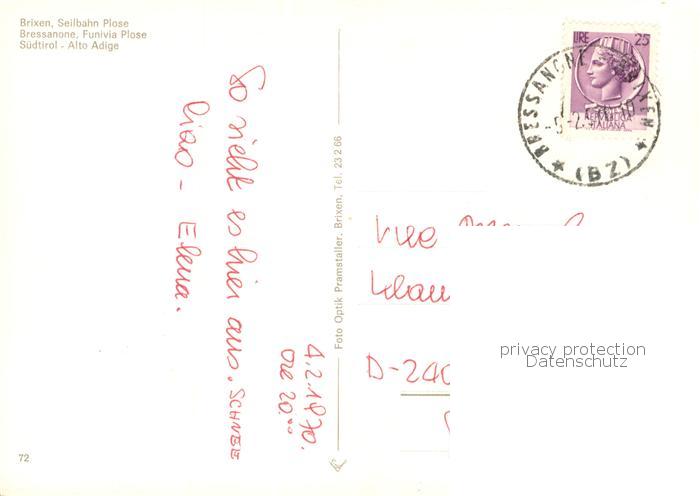 Brixen, Seilbahn Plose
Bressanone, Funivia Plose
Südtirol - Alto Adige
LIRE 25
REPVBBLICA
ITALIANA
BRESSANONE BRIXEN
(BZ)
4.2.1970.
ore 20.00
So sieht es hier aus. SCHNEE
Ciao - Elena.
Foto Optik Pramstaller, Brixen, Tel. 23 2 66
D-240
privacy protection
Datenschutz
72